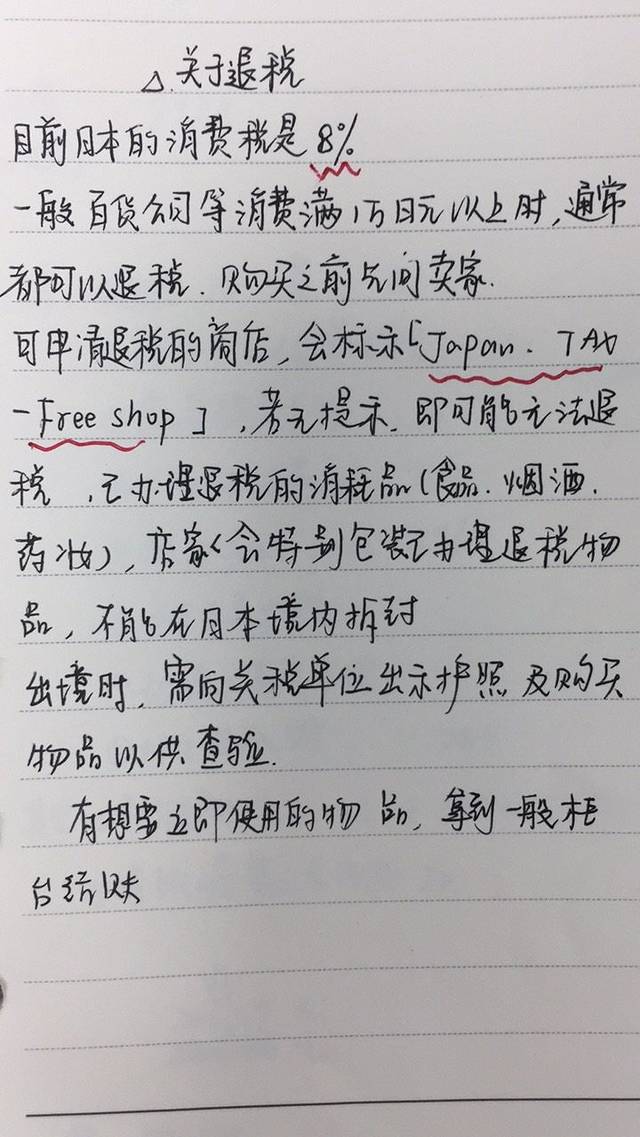 △.关于退税
目前日本的消费税是8%
一般百货公司等消费满1万日元以上时,通常
都可以退税.购买之前先问卖家.
可申请退税的商店,会标示「Japan. TAX
-Free shop」,若无提示.即可能无法退
税,已办理退税的消耗品(食品.烟酒.
药妆),店家会特别包装已办理退税物
品,不能在日本境内拆封
出境时,需向关税单位出示护照及购买
物品以供查验.
有想要立即使用的物品,拿到一般柜
台结账